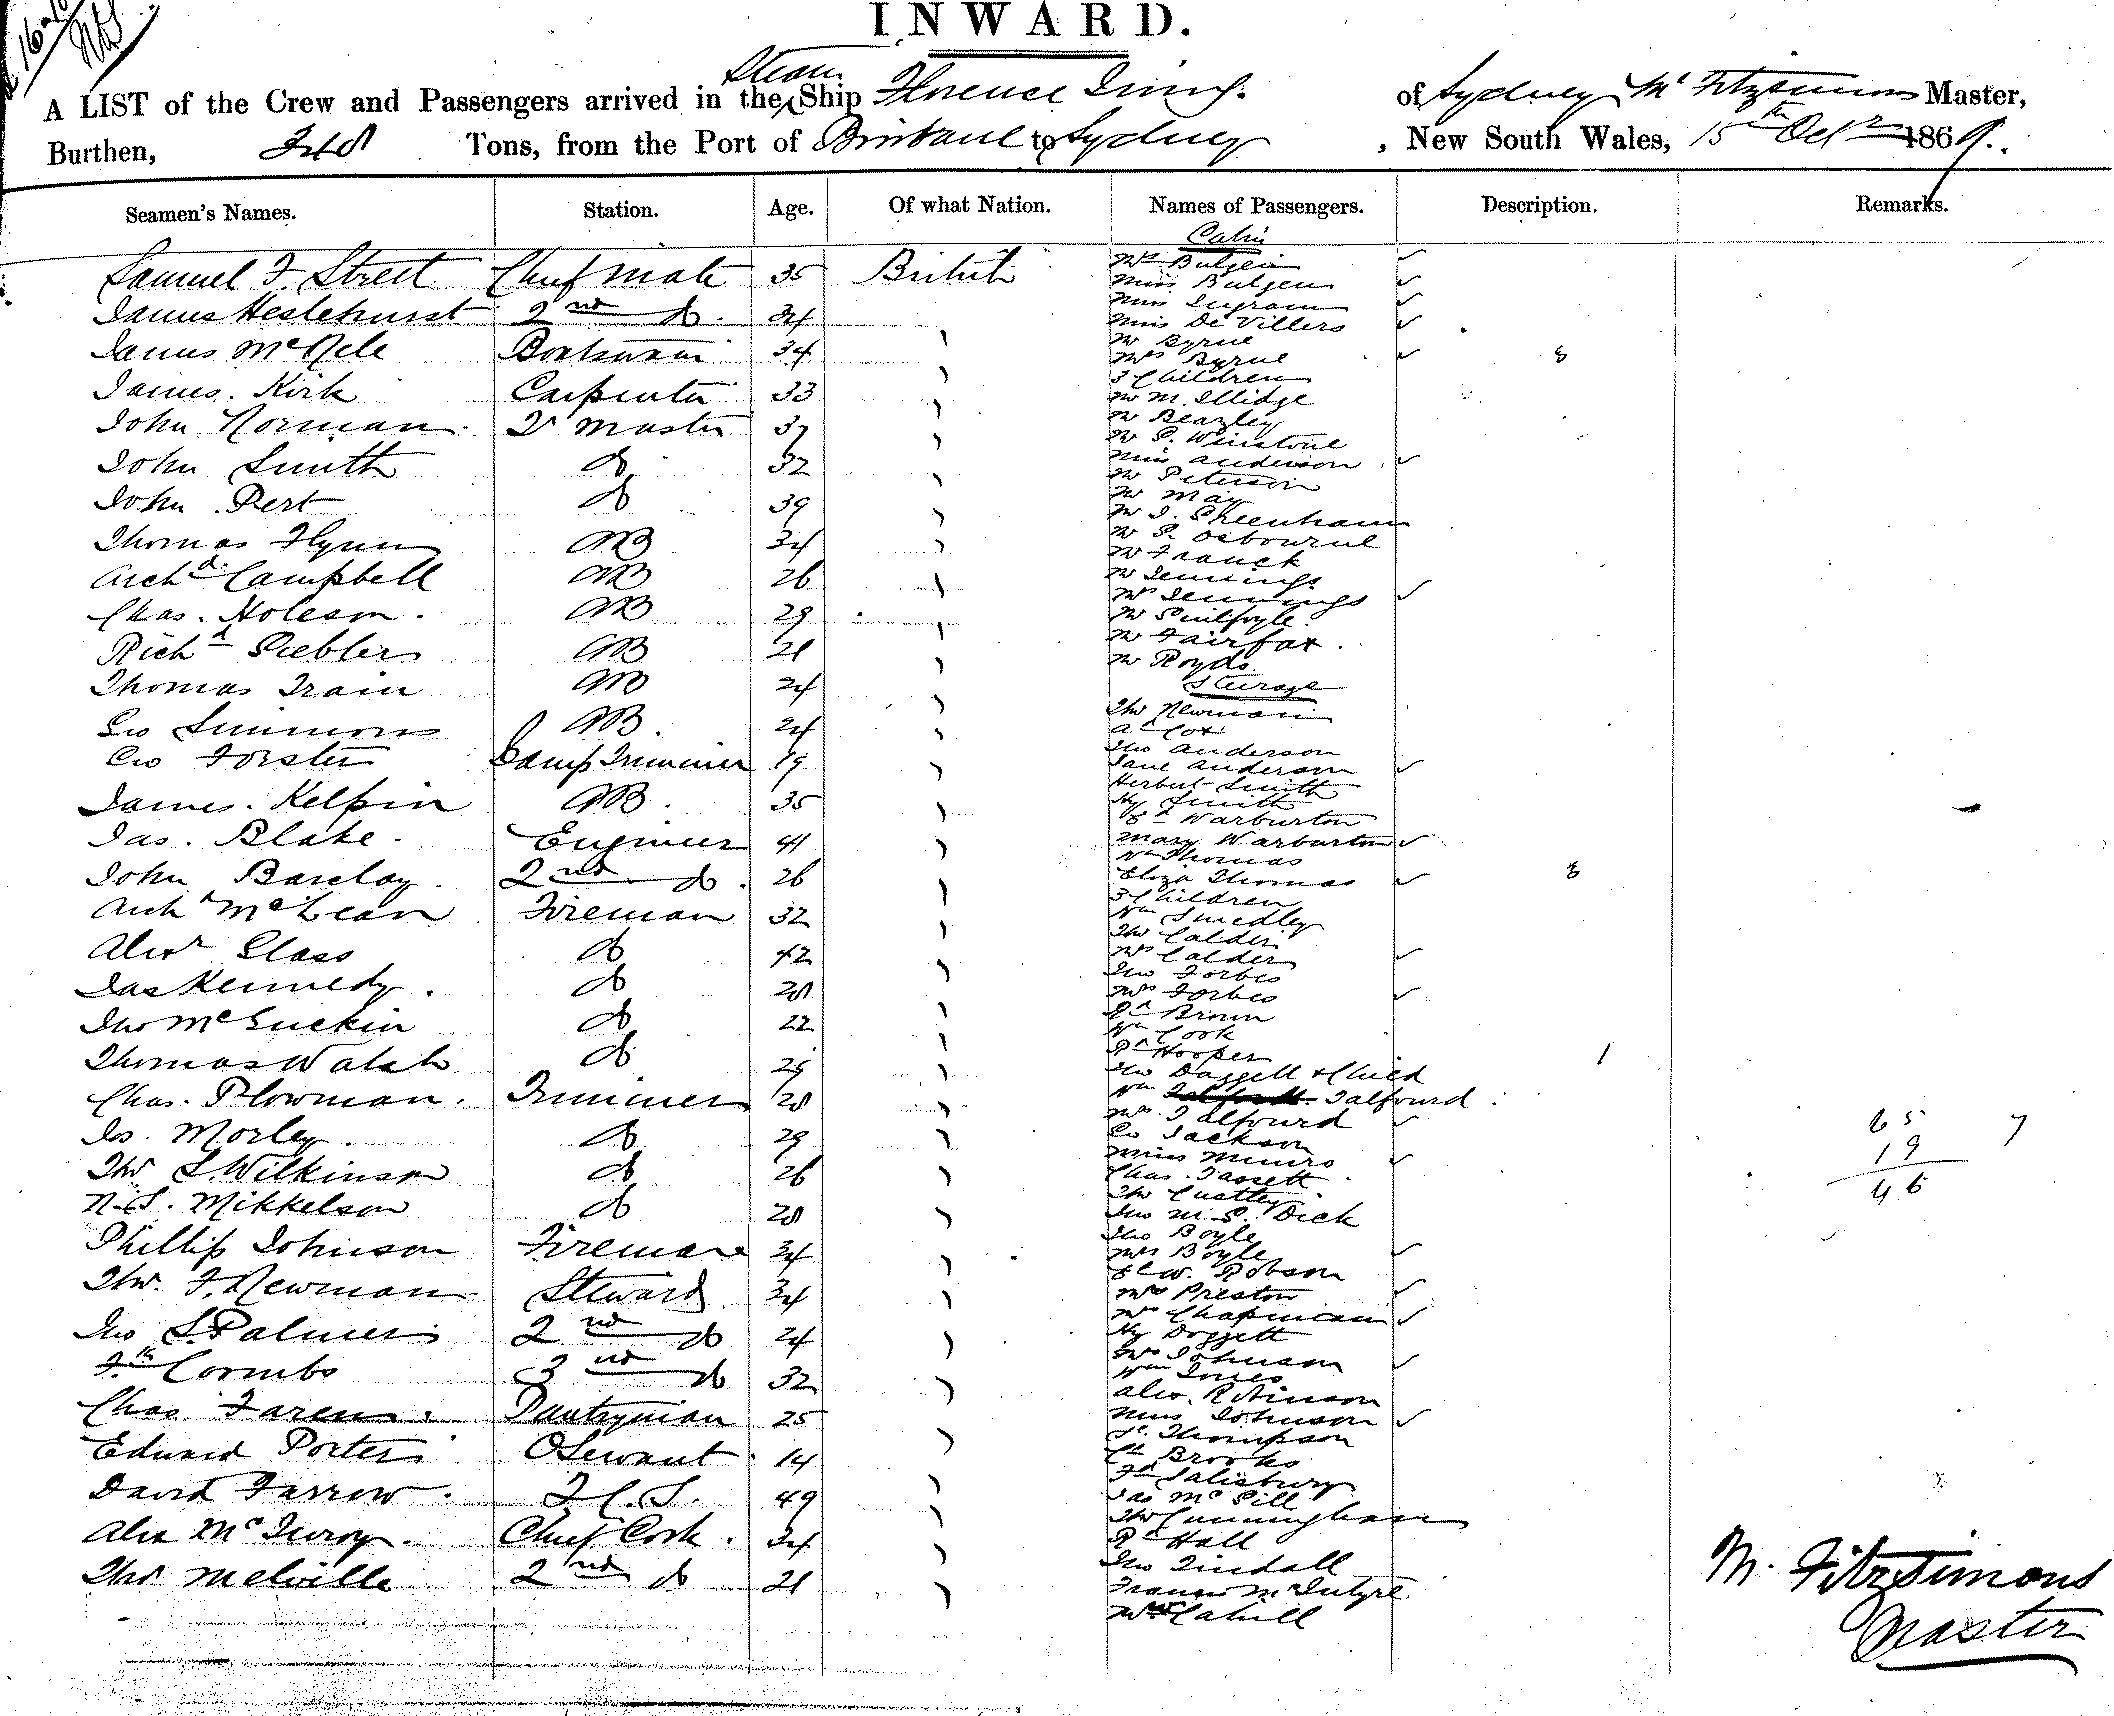 INWARD.
Steam
A LIST of the Crew and Passengers arrived in the Ship Florence Irving. of Sydney, Mc Fitzsimons Master,
Burthen, Tons, from the Port of Brisbane to Sydney, New South Wales, 15th Octr 1869.
Seamen's Names. Station. Age. Of what Nation. Names of Passengers. Description. Remarks.
Cabin
Samuel F. Street Chief Mate 35 British
James Heslehurst 2nd do. 34
James 34
James. Kirk Carpenter 33
John Norman Master
John Smith do 32
John Pert do 39
Thomas Flynn AB 34
Archd. Campbell AB 26
Chas. AB 29
Richd AB 21
Thomas Train AB 24
Geo Simmons AB. 24
Geo Forster Lamp Trimmer 19
James. Kelpin AB. 35
Jas. Blake. Engineer 41
John Barclay. 2nd do. 26
Archd McLean Fireman 32
Alexr Glass do 42
Jas Kennedy. do 28
Jno McGuckin do 22
Thomas Walsh do 29
Chas. Plowman. Trimmer 28
Morley. do 29
Thos S. Wilkinson do 26
N. S. Mikkelson do 28
Phillip Johnson Fireman 34
Thos. F. Newman Steward 34
Jno S. Palmer 2nd do 24
Coombs 3rd do 32
Chas. Pantryman 25
Edward Porter OServant 14
David Farrow. F.C.S. 49
Alex Chief Cook. 34
Thos Melville 2nd do 21
Mrs Bulgen
Miss Bulgen
Miss Ingram
Miss De Villers
Mr Byrne
Mrs Byrne
3 Children
8
Mr M. Illidge
Mr Beazley
Mr Winstone
Miss Anderson
Mr Peterson
Mr May
Mr J. Greenham
Mr Osbourne
Mr Franck
Mr Jennings
Mrs Jennings
Mr Guilfoyle
Mr Fairfax.
Mr Royds
Steerage
Thos Newman
A. Cox
Jno Anderson
Jane Anderson
Herbert Smith
Hy Smith
Warburton
Mary Warburton
Wm Thomas
Eliza Thomas 8
3 Children
Wm Smedley
Thos Calder
Mrs Calder
Jno Forbes
Mrs Forbes
Brown
Wm Cook
Rd Hooper
Jno Daggett & Child 1
Wm Talfourd
Mrs Talfourd
Geo Jackson
Miss Munro
Chas. Tassett
Thos
Jno M. S. Dick
Jno Boyle
Mrs Boyle
W. Robson
Mrs Preston
Mrs Chapman
Hy Doggett
Mrs Johnson
Wm Jones
Alex. Robinson
Miss Johnson
Thompson
Brooks
Salisbury
Jas McGill
Thos Cunningham
Rd Hall
Jno Tindall
Francis McIntyre
Cahill
65 7
19
46
M. Fitzsimons
Master